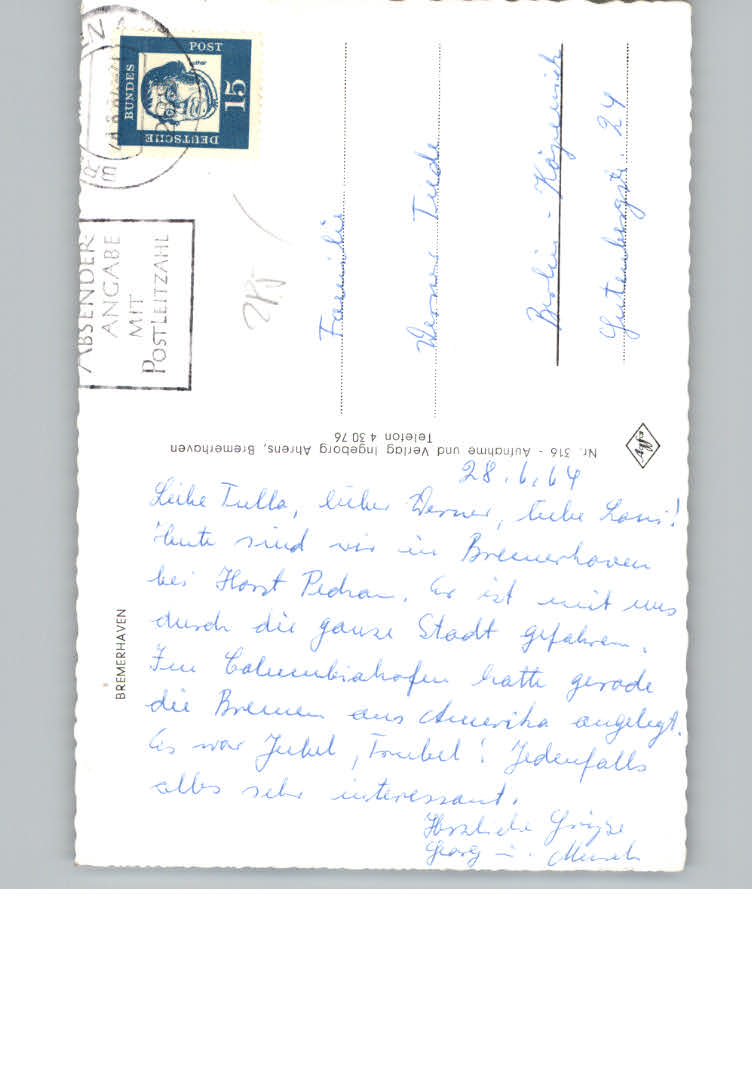 28.6.64
Liebe Tulla, lieber Werner, liebe Loni!
Heute sind wir in Bremerhaven
bei Horst. Er ist mit uns
durch die ganze Stadt gefahren.
Im Columbiahafen hatte gerade
die Bremen aus Amerika angelegt.
Es war Jubel, Trubel! Jedenfalls
alles sehr interessant.
Herzliche Grüsse
Georg u.
Familie
Werner Tiede
Berlin-Köpenick
Gutenbergstr. 24
BREMERHAVEN
Nr. 316 - Aufnahme und Verlag Ingeborg Ahrens, Bremerhaven
Telefon 4 30 76
Agfa
DEUTSCHE
BUNDES
POST
15
Luther
ABSENDER-
ANGABE
MIT
POSTLEITZAHL